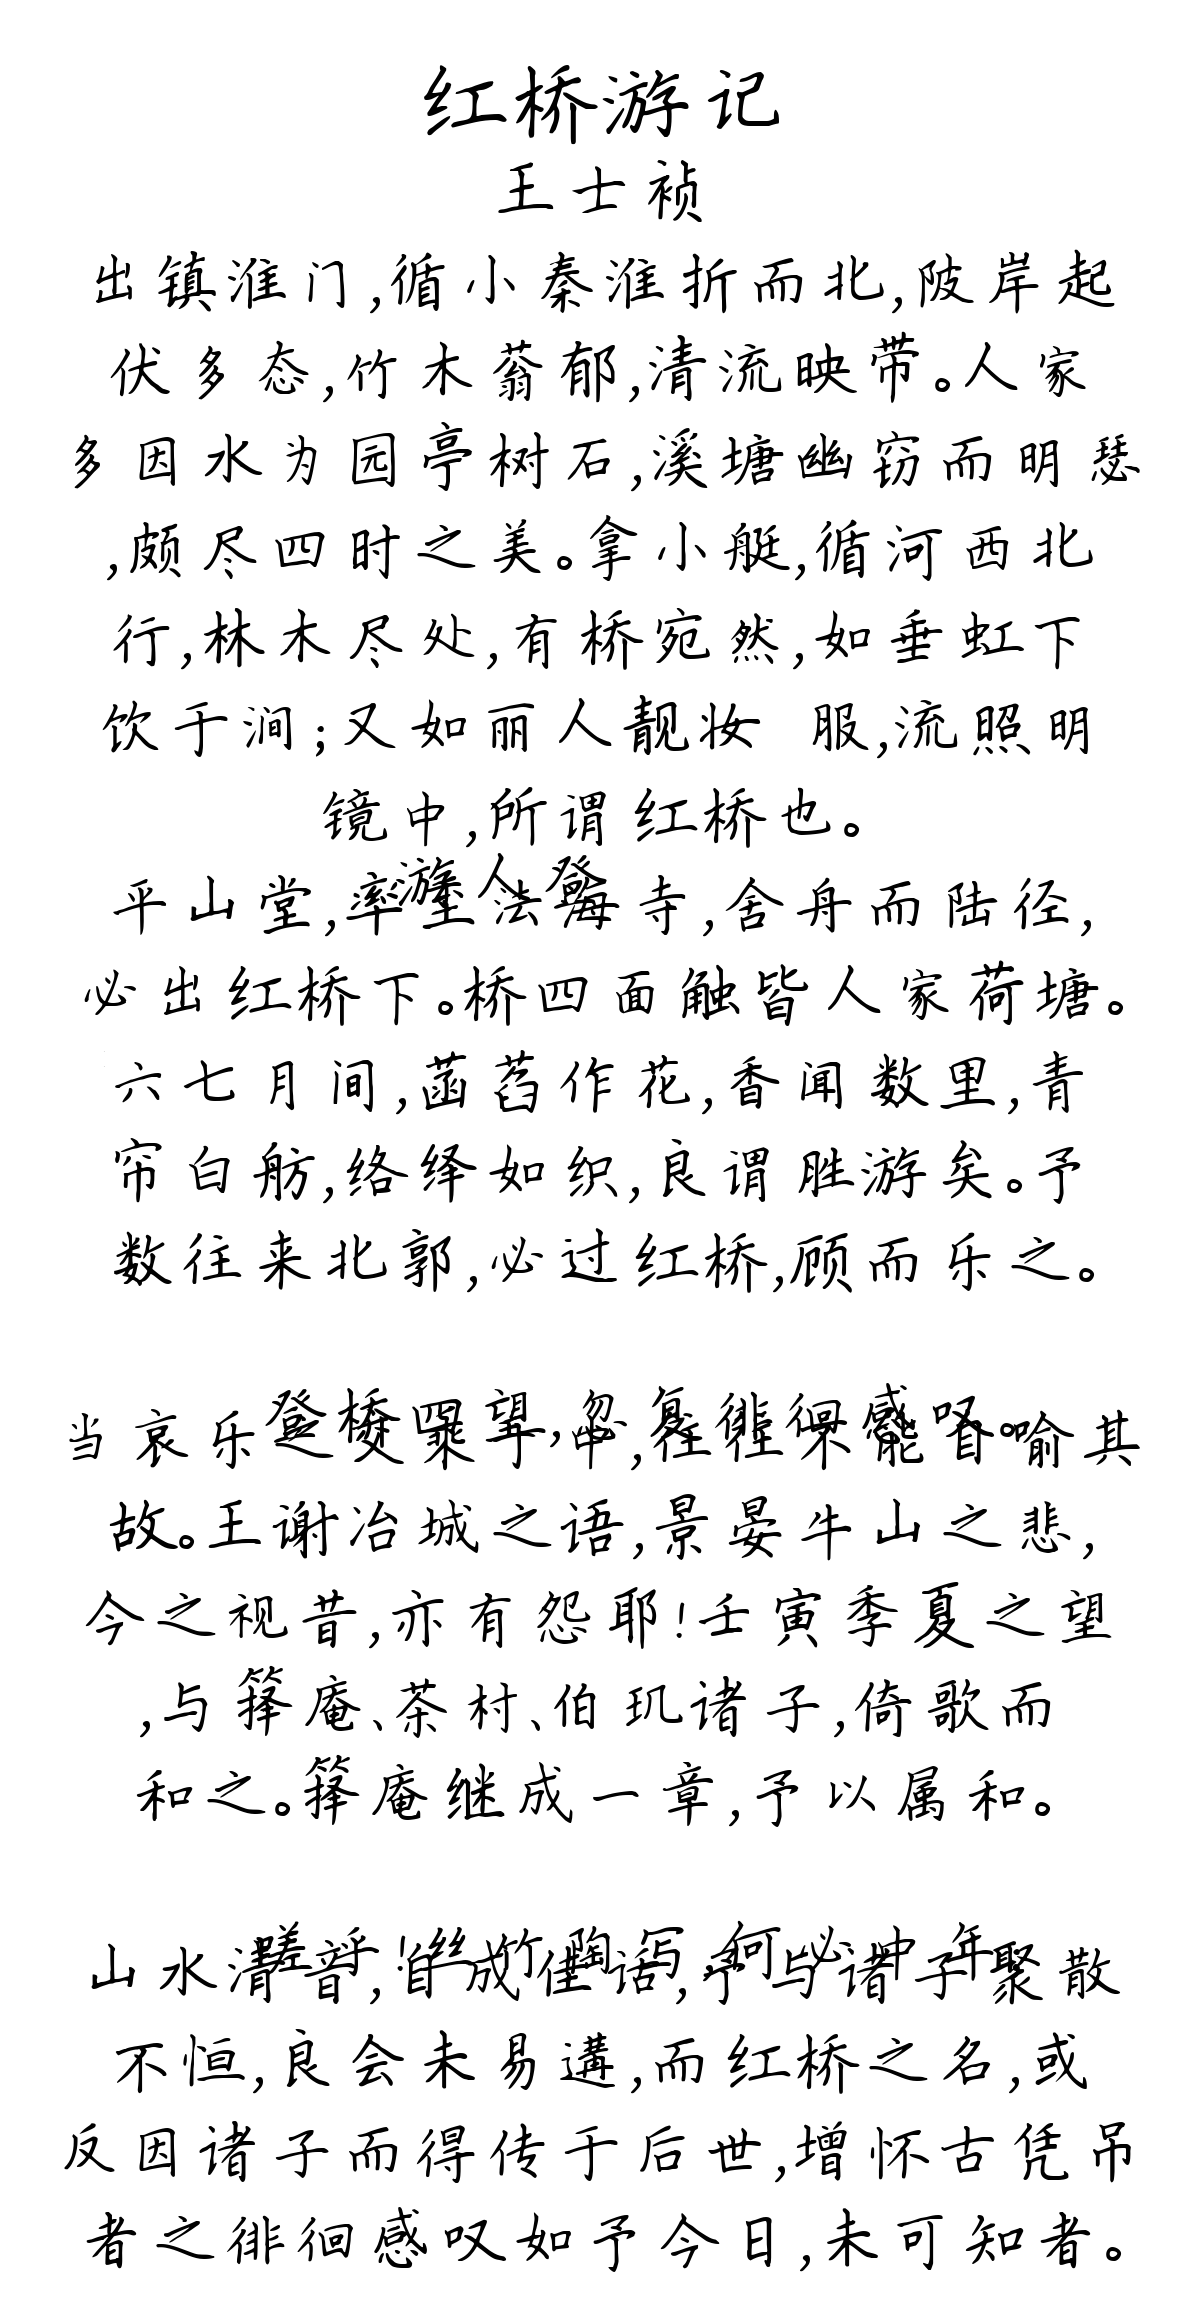 红桥游记
王士祯
出镇淮门,循小秦淮折而北,陂岸起
伏多态,竹木蓊郁,清流映带。人家
多因水为园亭树石,溪塘幽窃而明瑟
,颇尽四时之美。拿小艇,循河西北
行,林木尽处,有桥宛然,如垂虹下
饮于涧;又如丽人靓妆 服,流照明
镜中,所谓红桥也。
游人登
平山堂,率至法海寺,舍舟而陆径,
必出红桥下。桥四面触皆人家荷塘。
六七月间,菡萏作花,香闻数里,青
帘白舫,络绎如织,良谓胜游矣。予
数往来北郭,必过红桥,顾而乐之。
登桥四望,忽复徘徊感叹。
当哀乐之交乘于中,往往不能自喻其
故。王谢冶城之语,景晏牛山之悲,
今之视昔,亦有怨耶!壬寅季夏之望
,与箨庵、茶村、伯玑诸子,倚歌而
和之。箨庵继成一章,予以属和。
嗟乎!丝竹陶写,何必中年
山水清音,自成佳话,予与诸子聚散
不恒,良会未易遘,而红桥之名,或
反因诸子而得传于后世,增怀古凭吊
者之徘徊感叹如予今日,未可知者。